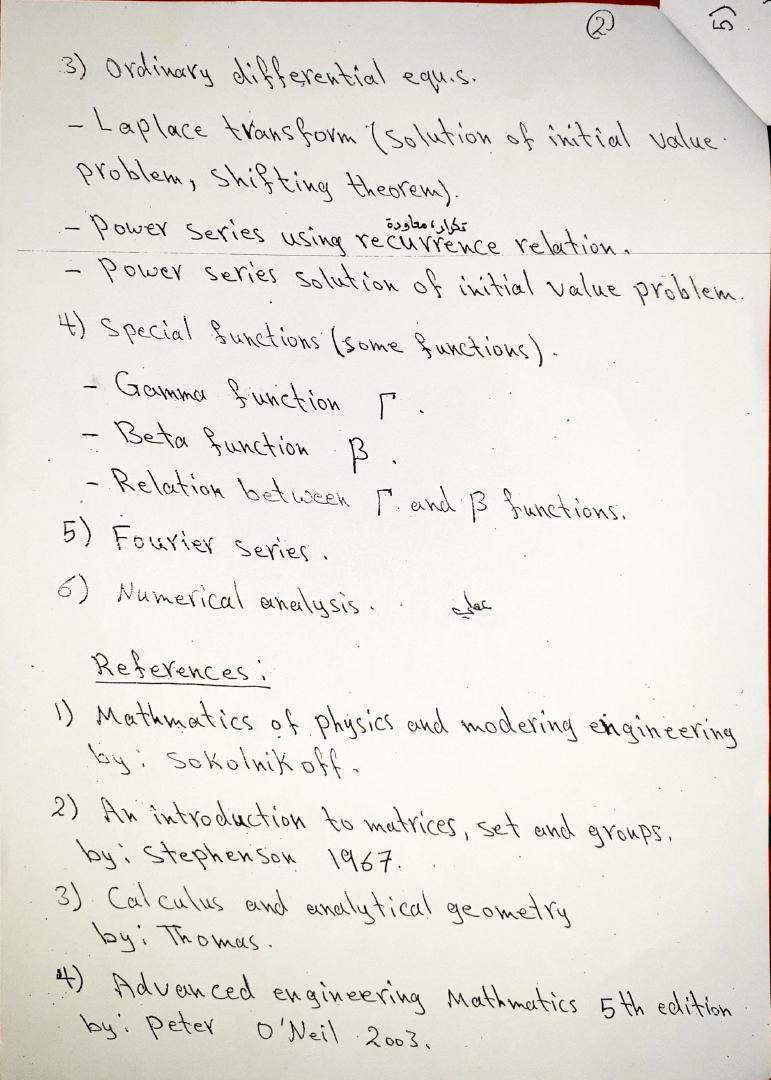 ②
5)
3) Ordinary differential equ.s.
- Laplace transform (solution of initial value
problem, shifting theorem).
تكرار، معاودة
- Power series using recurrence relation.
- Power series solution of initial value problem.
4) Special functions (some functions).
- Gamma function Γ.
- Beta function β.
- Relation between Γ and β functions.
5) Fourier series.
6) Numerical analysis. عملي
References:
1) Mathmatics of physics and modering engineering
by: Sokolnikoff.
2) An introduction to matrices, set and groups.
by: Stephenson 1967.
3) Calculus and analytical geometry
by: Thomas.
4) Advanced engineering Mathmatics 5th edition
by: Peter O'Neil 2003.